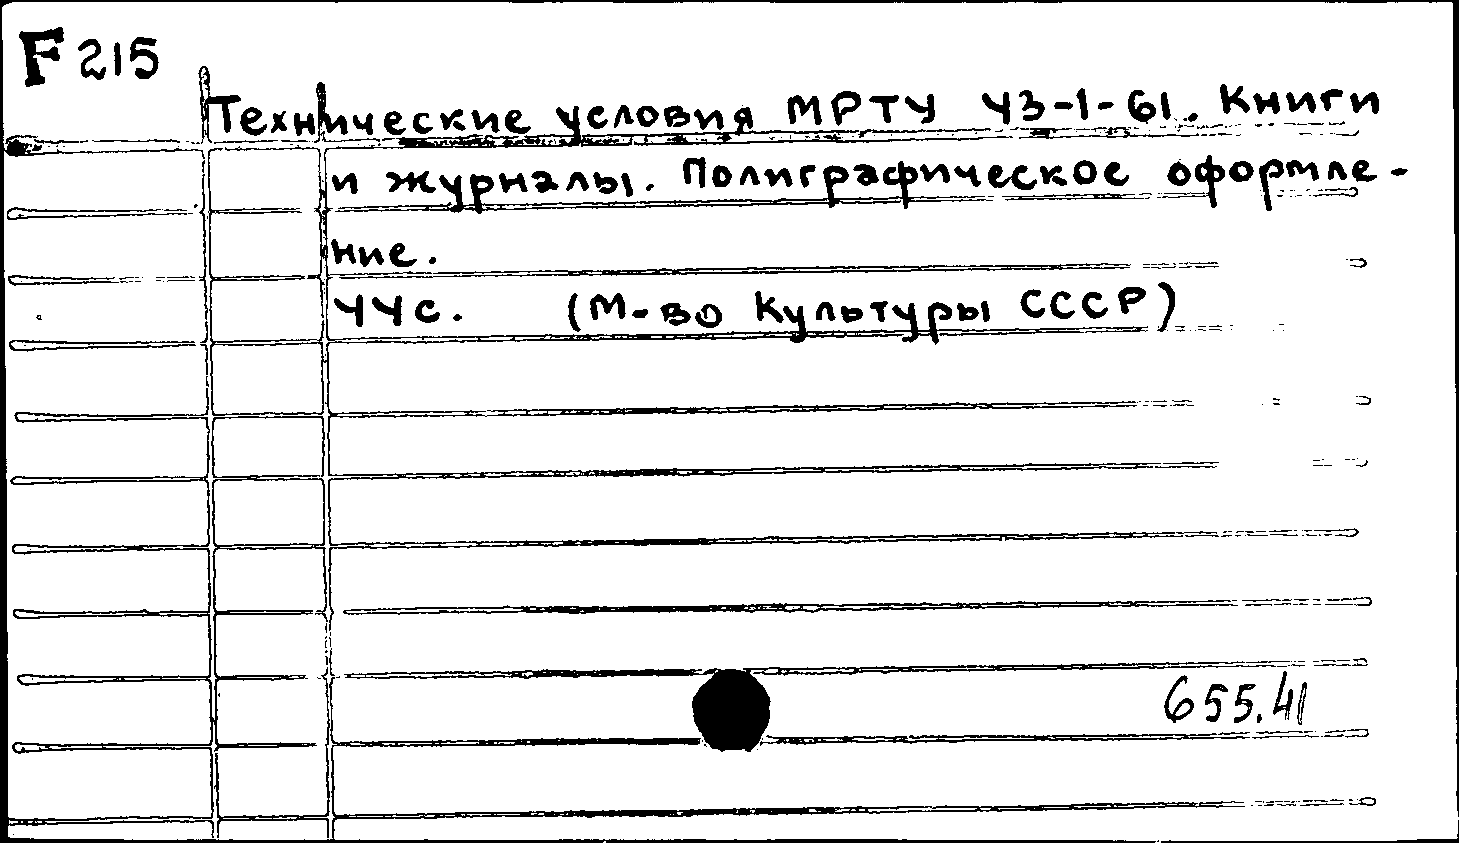 F 215
Технические условия МРТУ 43-1-61. Книги
и журналы. Полиграфическое оформле-
ние.
44с. (М-во Культуры СССР)
655.41